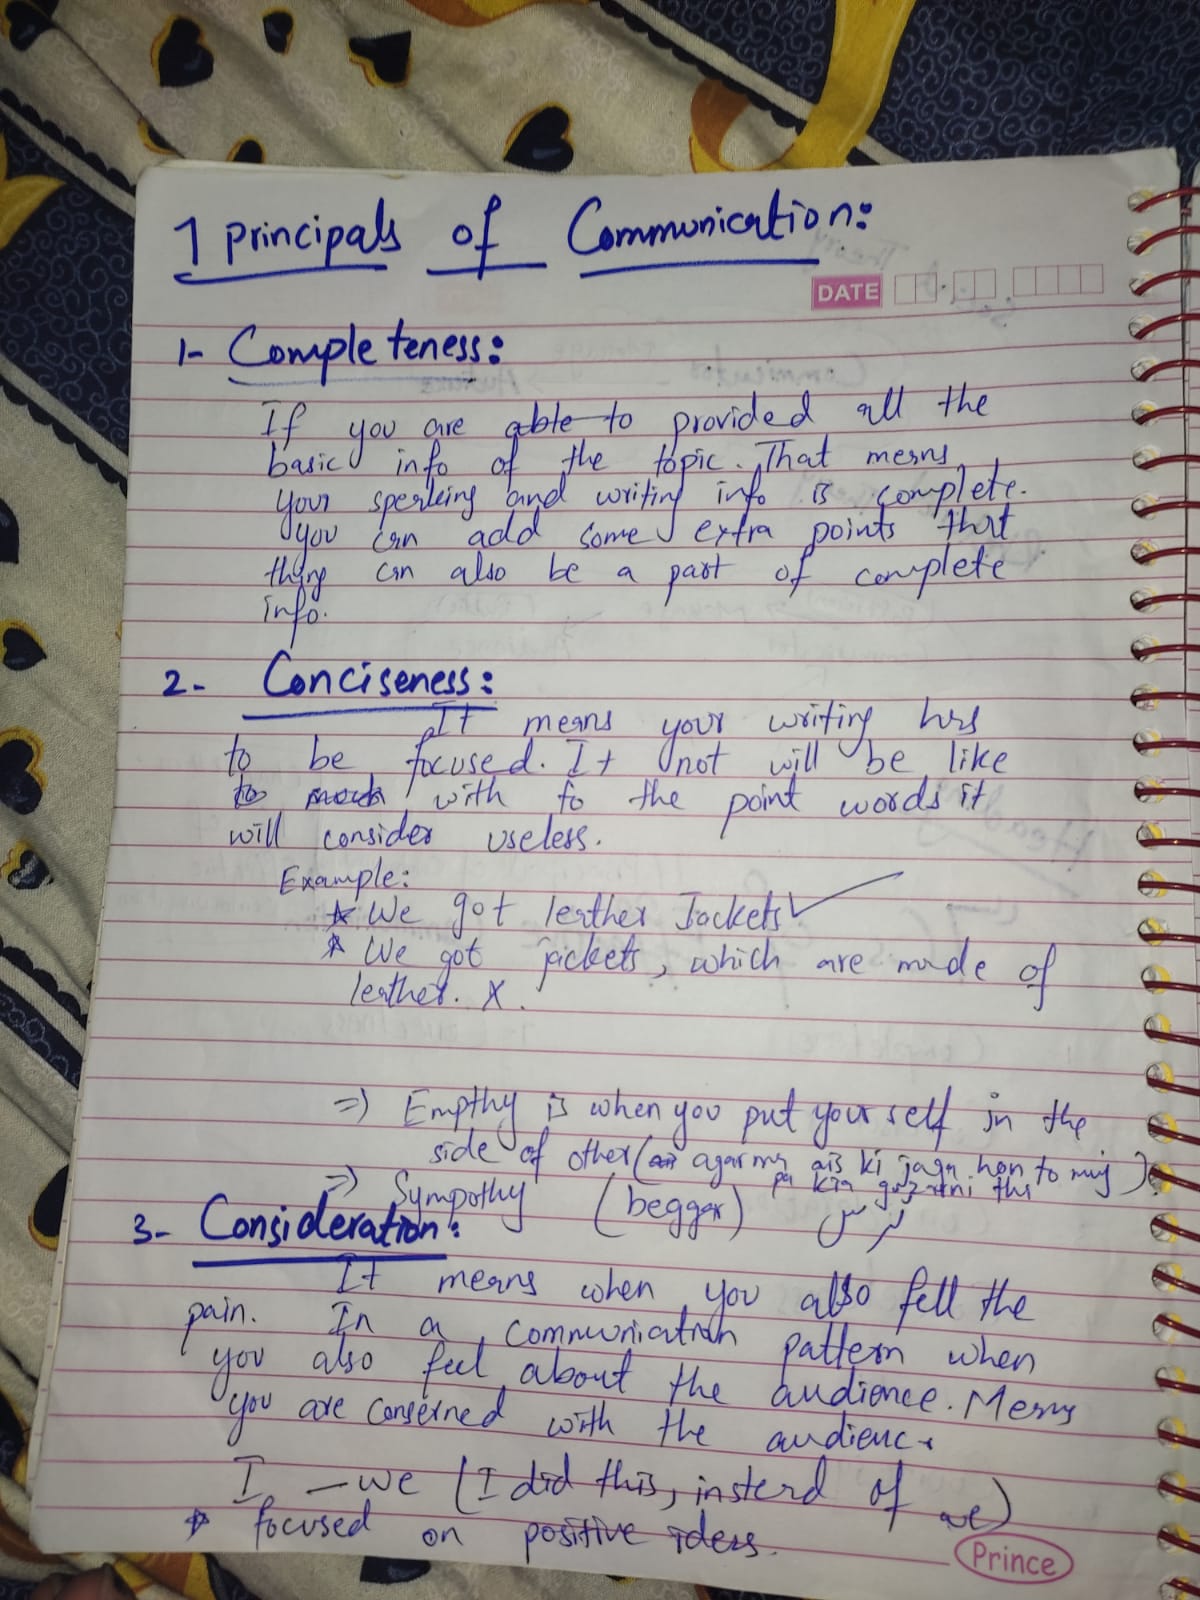 7 principals of Communication:
DATE
1- Completeness:
If you are able to provided all the
basic info of the topic. That means
your speaking and writing info is complete.
you can add some extra points that
thing can also be a part of complete
info.
2- Conciseness:
It means your writing has
to be focused. It not will be like
to much with to the point words it
will consider useless.
Example:
* We got leather Jackets ✓
* We got jackets, which are made of
leather. X.
=> Empthy is when you put your self in the
side of other (agar ma ais ki jaga hon to muj)
pa kia guzarni tha
=> Sympothy (begger) ترس
3- Consideration:
It means when you also fell the
pain. In a communication pattern when
you also feel about the audience. Means
you are conserned with the audienc.
I - we (I did this, instead of we)
* focused on positive ideas.
Prince